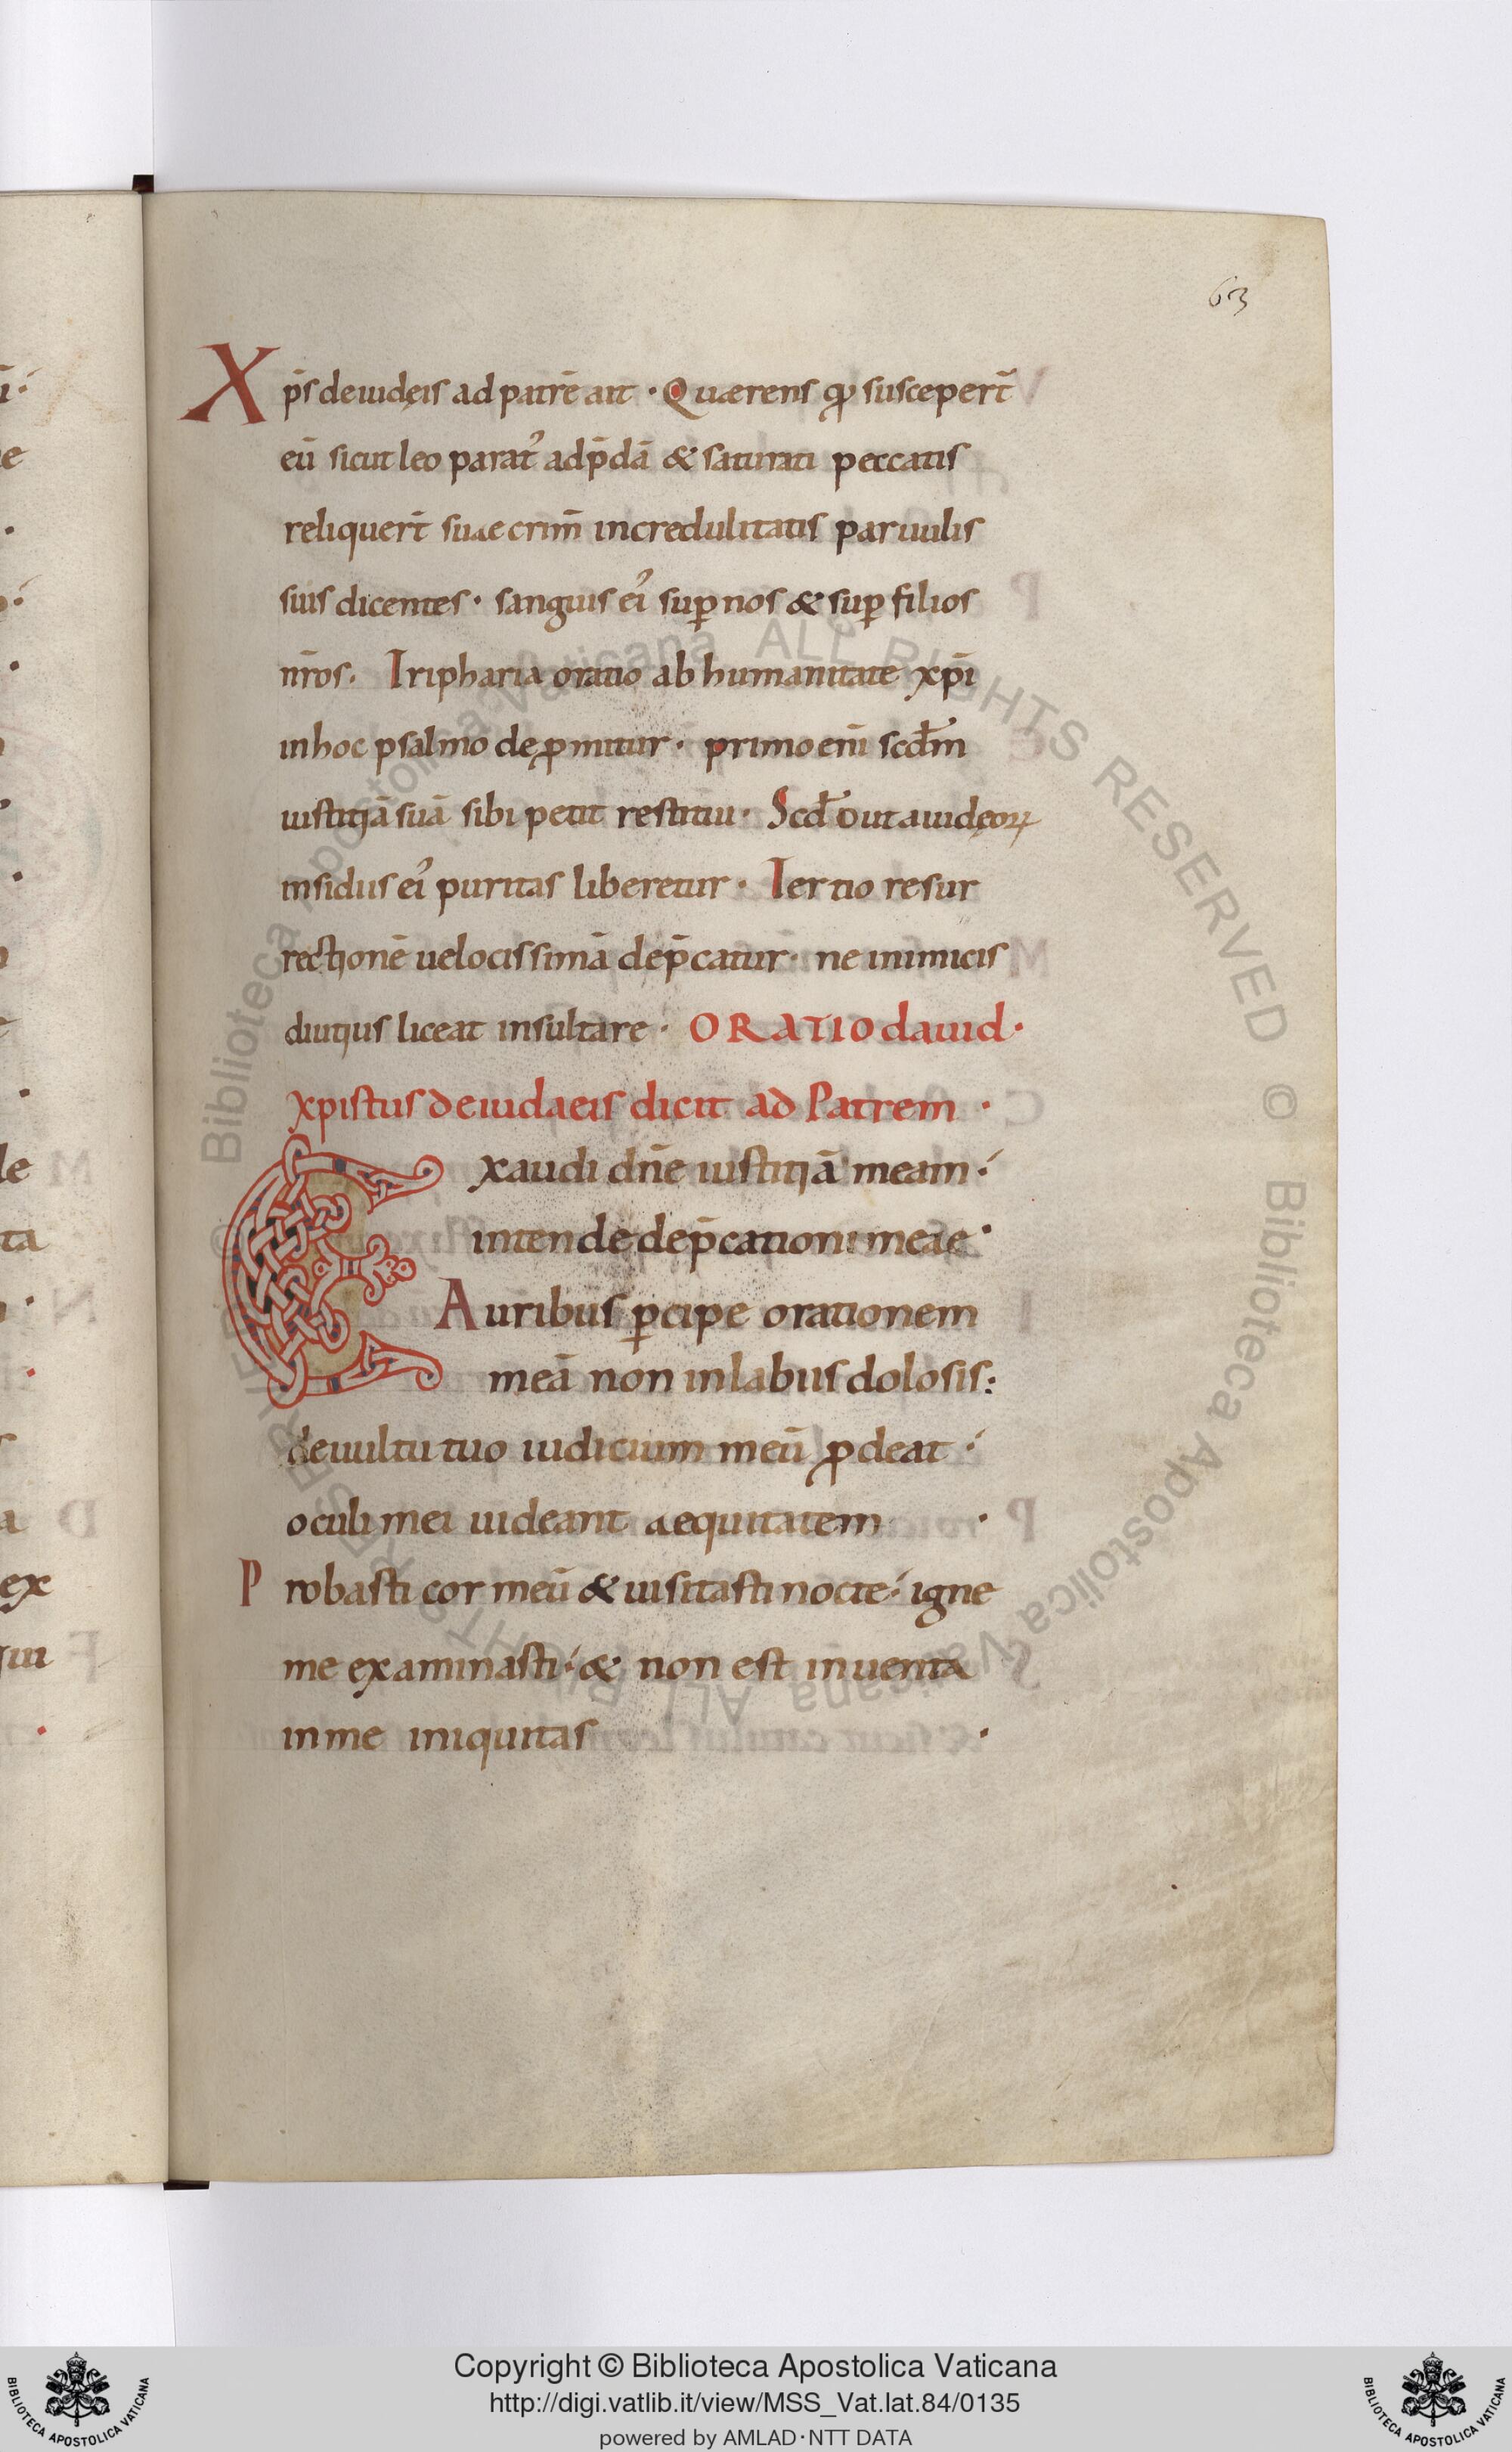 63
Xp̄s de iudęis ad patrē ait · Quærens qđ suscepert̄
eū sicut leo parat᾽ ad p̄dā & saturati peccatis
reliquert̄ suae crim̄ incredulitatis paruulis
suis dicentes · sanguis ei᾽ sup nos & sup filios
nr̄os. Tripharia oratio ab humanitate xp̄i
in hoc psalmo depromitur · primo eni̅ scđm
iustitiā suā sibi petit restitui · Scđo ut a iudęoꝝ
insidiis ei᾽ puritas liberetur · Tertio resur
rectionē uelocissimā dep̄catur · ne inimicis
diutius liceat insultare · ORATIO dauid ·
xpistus de iudaeis dicit ad Patrem ·
Exaudi dn̄e iustitiā meam ·
intende dep̄cationi meae ·
Auribus ꝑcipe orationem
meā non in labiis dolosis :
de uultu tuo iudicium meū ꝓdeat ·
oculi mei uideant aequitatem ·
Probasti cor meū & uisitasti nocte · igne
me examinasti · & non est inuenta
in me iniquitas ·
le
ta
ex
Biblioteca Apostolica Vaticana ALL RIGHTS RESERVED ©
Biblioteca Apostolica Vaticana ALL RIGHTS RESERVED ©
Copyright © Biblioteca Apostolica Vaticana
http://digi.vatlib.it/view/MSS_Vat.lat.84/0135
powered by AMLAD·NTT DATA
BIBLIOTECA APOSTOLICA VATICANA
BIBLIOTECA APOSTOLICA VATICANA